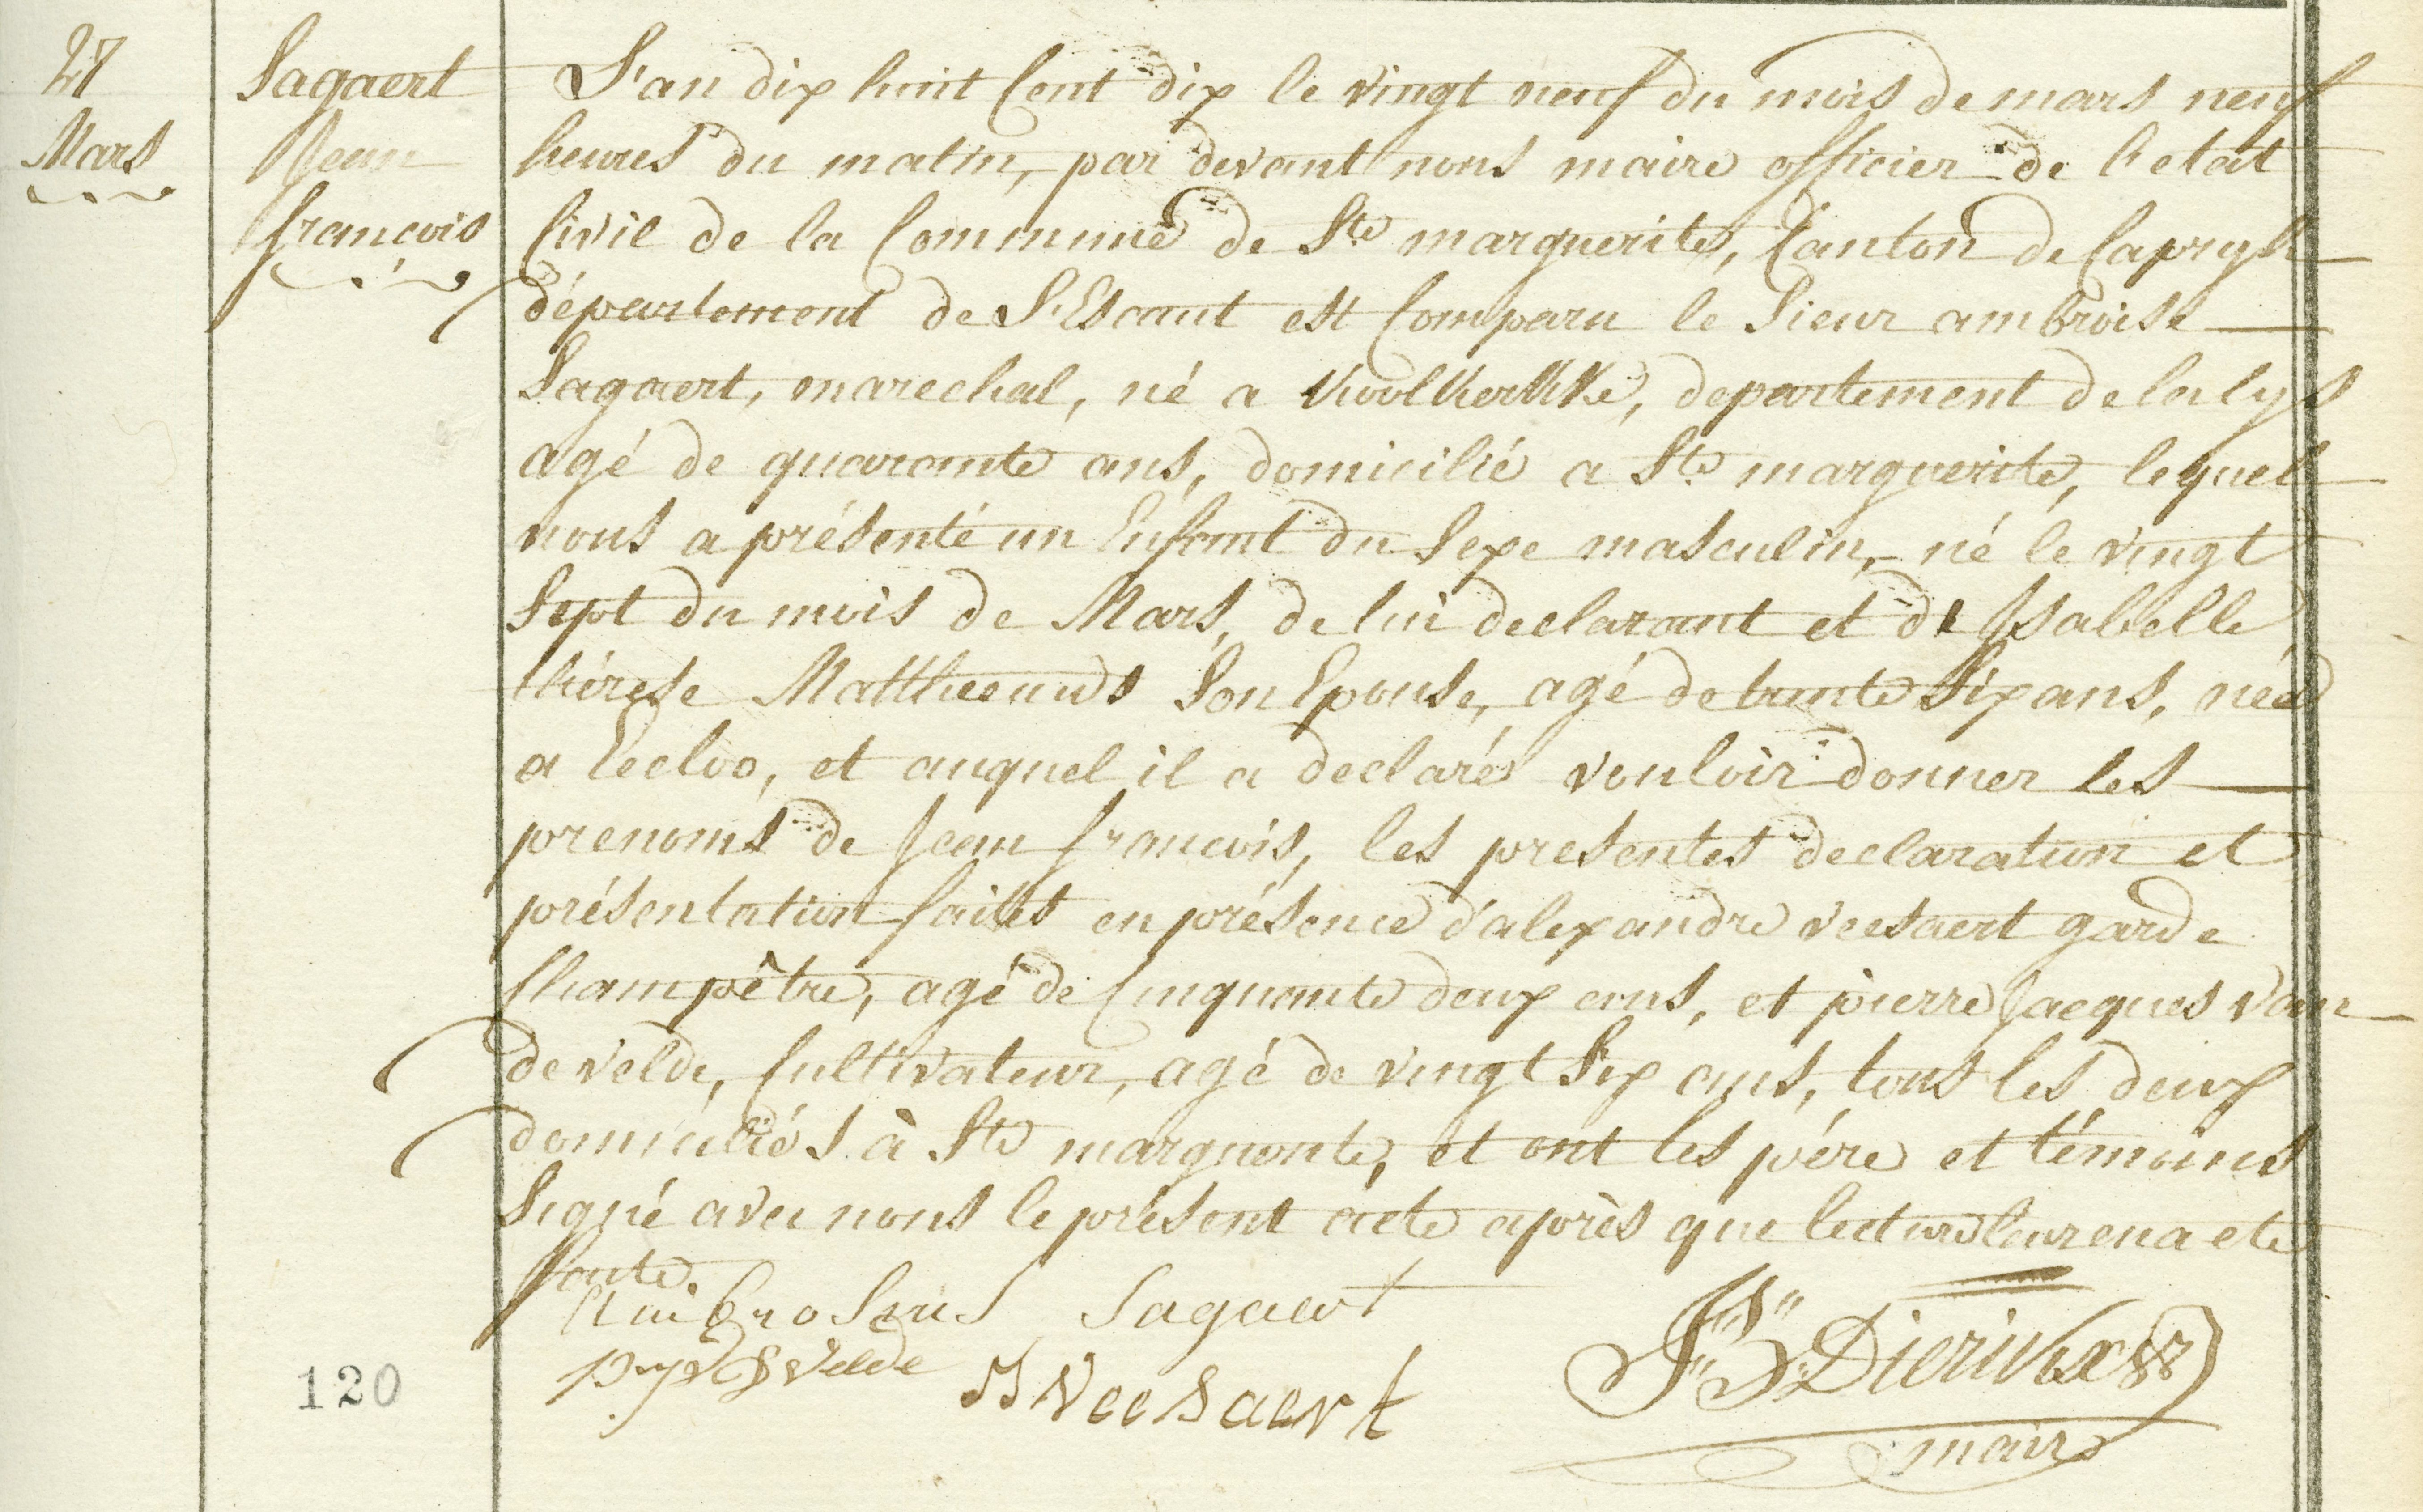 27
Mars
Sagaert
Jean
francois
L'an dix huit Cent dix le vingt neuf du mois de mars neuf
heures du matin, par devant nous maire officier de l'etat
Civil de la Commune de Ste marguerite, Canton de Capryk
département de L'Escaut est Comparu le Sieur ambroise
Sagaert, marechal, né a Koolkerkke, departement de la lys
agé de quarante ans, domicilié a Ste marguerite, lequel
nous a présenté un Enfant du Sexe masculin, né le vingt
Sept du mois de Mars, de lui declarant et de Isabelle
thérese Mattheeuws Son Epouse, agé de trente Six ans, née
a Eecloo, et auquel il a declaré vouloir donner les
prenoms de Jean francois, les presentes declaration et
présentation faites en présence d'alexandre veesaert garde
Champêtre, agé de Cinquante deux ans, et pierre Jacques van
de velde, Cultivateur, agé de vingt Six ans, tous les deux
domiciliés à Ste marguerite, et ont les pére et témoins
Signé avec nous le présent acte après que lecture leur en a ete
faite.
Ambrosius Sagaert
Velde
Veesaert
Dierickx
maire
120